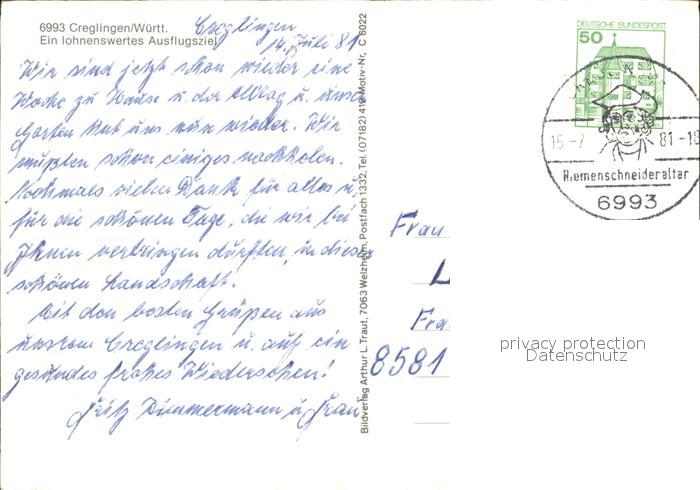 6993 Creglingen/Württ.
Ein lohnenswertes Ausflugsziel
Creglingen
14. Juli 81
Wir sind jetzt schon wieder eine
Woche zu Hause u. der Alltag u. unser
Garten hat uns nun wieder. Wir
mußten schon einiges nachholen.
Nochmals vielen Dank für alles u.
für die schönen Tage, die wir bei
Ihnen verbringen durften, in dieser
schönen Landschaft.
Mit den besten Grüßen aus
unserem Creglingen u. auf ein
gesundes frohes Wiedersehen!
Fritz Dimmermann u. Frau
Bildverlag Arthur L. Traut, 7063 Welzheim, Postfach 1332, Tel. (07182) 419 Motiv-Nr. C 6022
DEUTSCHE BUNDESPOST
50
15.-7
81-18
Riemenschneideraltar
6993
Frau
L
Fra
8581
privacy protection
Datenschutz